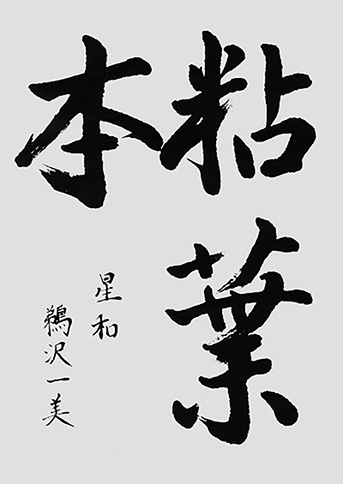 粘葉
本
星和
鵜沢一美